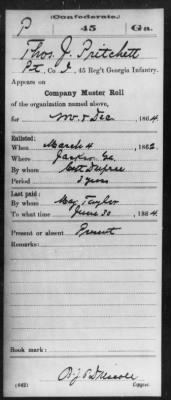 (Confederate.)
P 45 Ga.
Thos. J. Pritchett
Pt, Co. I, 45 Reg't Georgia Infantry.
Appears on
Company Muster Roll
of the organization named above,
for Nov. & Dec., 1864.
Enlisted:
When March 4, 1862.
Where
By whom Capt Dupree
Period 3 years
Last paid:
By whom Maj. Taylor
To what time June 30, 1864.
Present or absent Present
Remarks:
Book mark:
(642) Copyist.